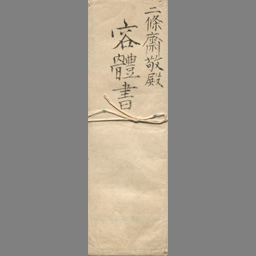 二條齋敬殿
容體書